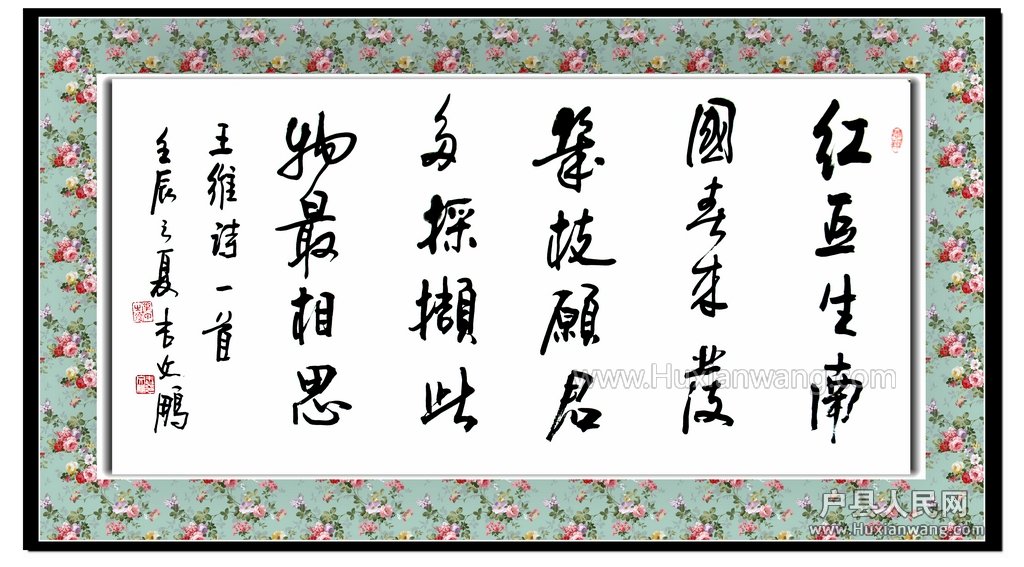 红豆生南
國春来發
幾枝願君
多採擷此
物最相思
王維詩一首
壬辰之夏 鵬
www.Huxianwang.com
户县人民网
www.Huxianwang.com